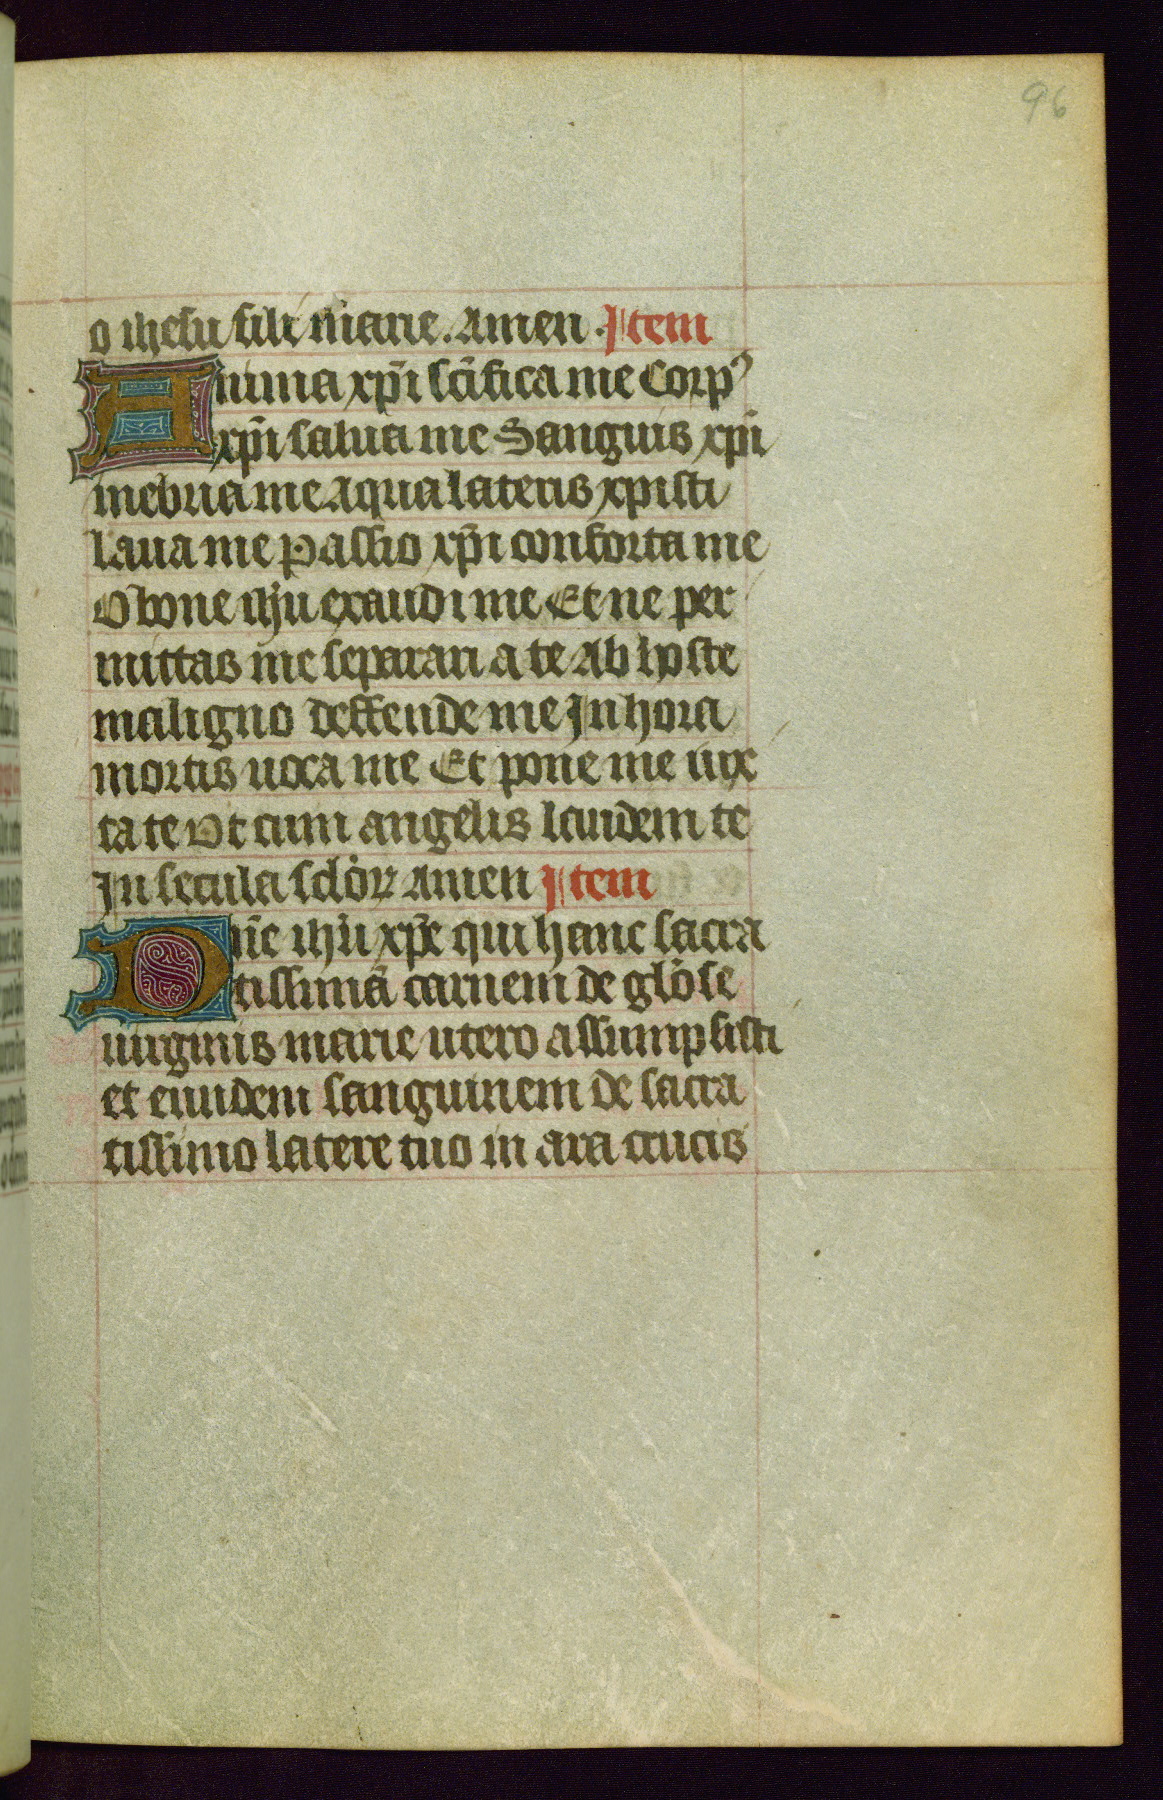 96
o ihesu fili marie. Amen. Item
Anima xp̄i sc̄ifica me Corpꝰ
xp̄i salua me Sanguis xp̄i
inebria me Aqua lateris xpisti
laua me Passio xp̄i conforta me
O bone ihū exaudi me Et ne per
mittas me separari a te Ab hoste
maligno deffende me In hora
mortis uoca me Et pone me iux
ta te Ut cum angelis laudem te
In secula sclorꝝ amen Item
Dn̄e ihū xp̄e qui hanc sacra
tissimā carnem de glōse
uirginis marie utero assumpsisti
et eiuidem sanguinem de sacra
tissimo latere tuo in ara crucis